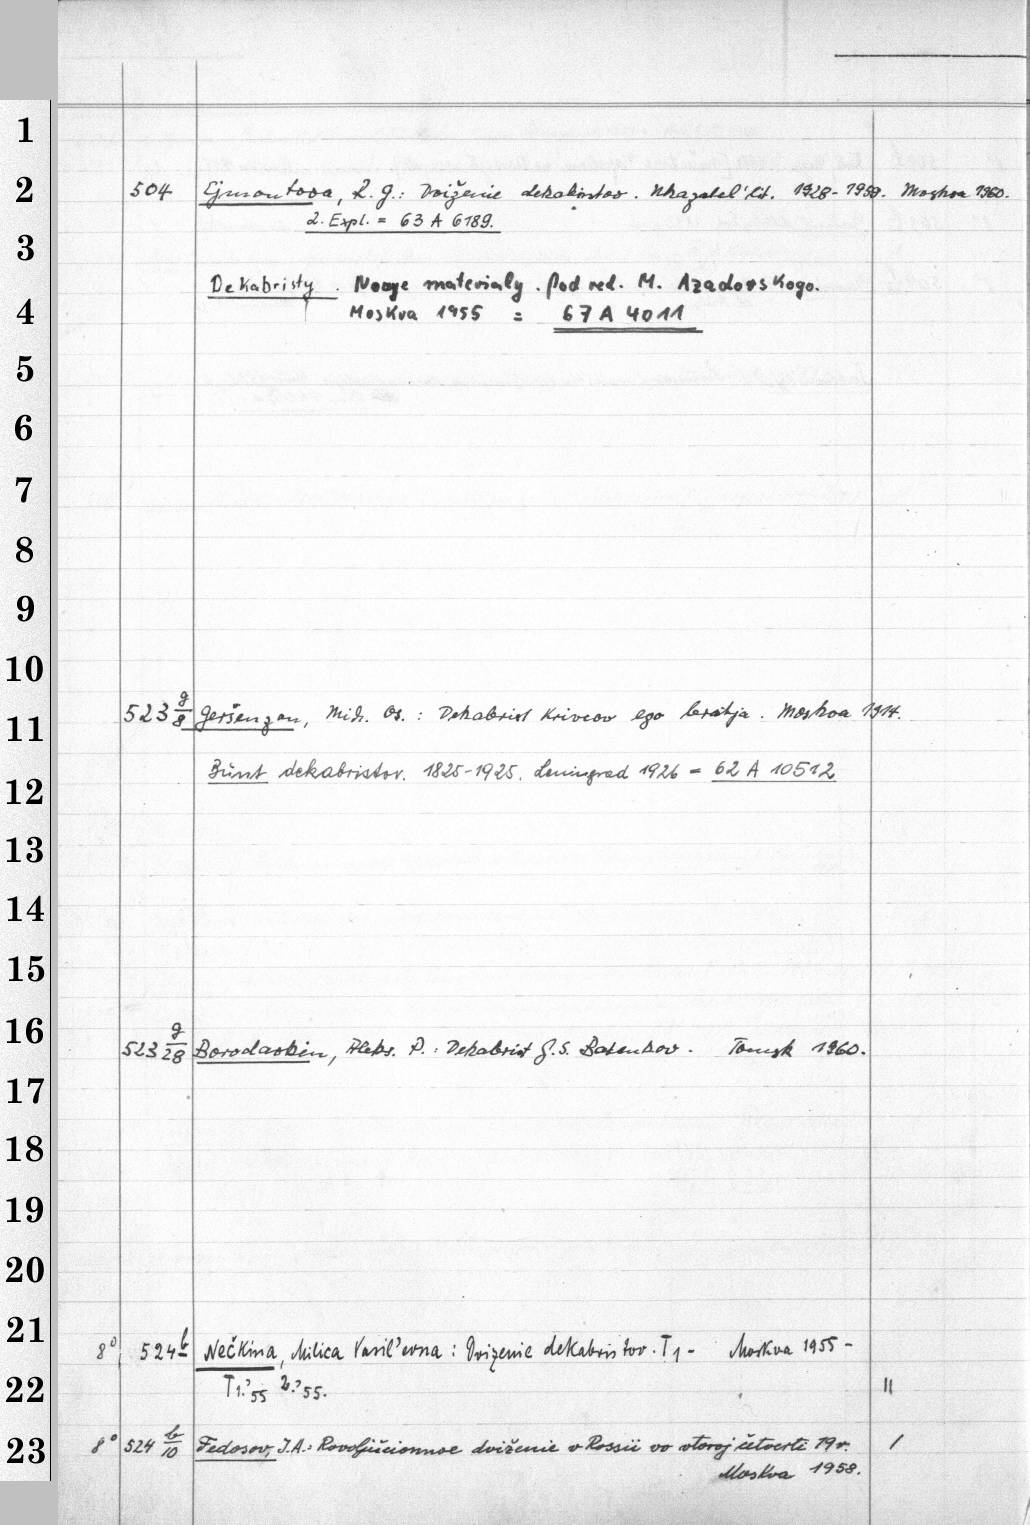 1
2
3
4
5
6
7
8
9
10
11
12
13
14
15
16
17
18
19
20
21
22
23
504 Ejmontova, R. G.: Dviženie dekabristov. Ukazatel' lit. 1928-1959. Moskva 1960.
2. Expl. = 63 A 6189.
Dekabristy. Novye materialy. Pod red. M. Azadovskogo.
Moskva 1955 = 67 A 4011
523 g/8 Geršenzon, Mich. Os.: Dekabrist Krivcov ego bratja. Moskva 1914.
Bunt dekabristov. 1825-1925. Leningrad 1926 = 62 A 10512
523 g/28 Borodavkin, Aleks. P.: Dekabrist G. S. Batenkov. Tomsk 1960.
8° 524 b Nečkina, Milica Vasil'evna: Dviženie dekabristov. T1- Moskva 1955-
T1.'55 2.'55. II
8° 524 b/10 Fedosov, I. A.: Revoljucionnoe dviženie v Rossii vo vtoroj četverti 19 v. I
Moskva 1958.